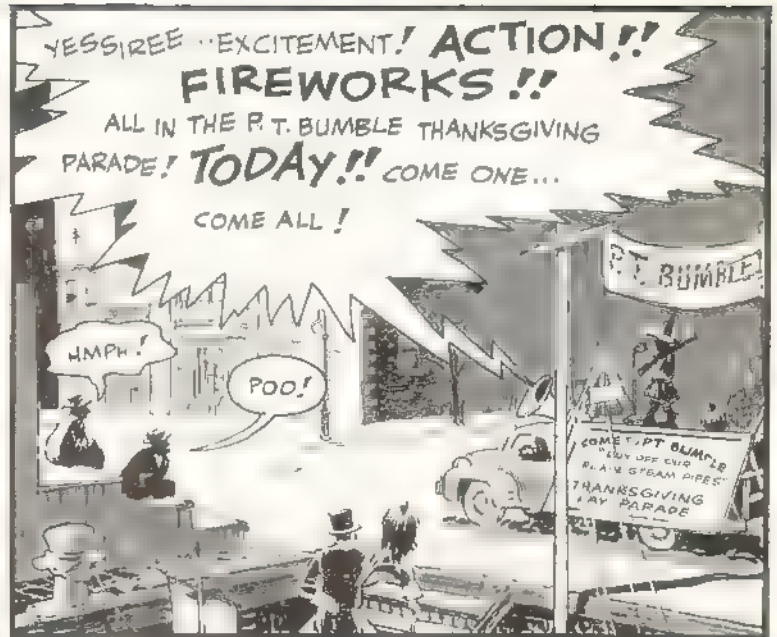 YESSIREE ··EXCITEMENT! ACTION!!
FIREWORKS!!
ALL IN THE P.T. BUMBLE THANKSGIVING
PARADE! TODAY!! COME ONE...
COME ALL!
P.T. BUMBLE
HMPH!
POO!
COME PT BUMBLE
OFF OUR
STEAM PIPES"
THANKSGIVING
DAY PARADE